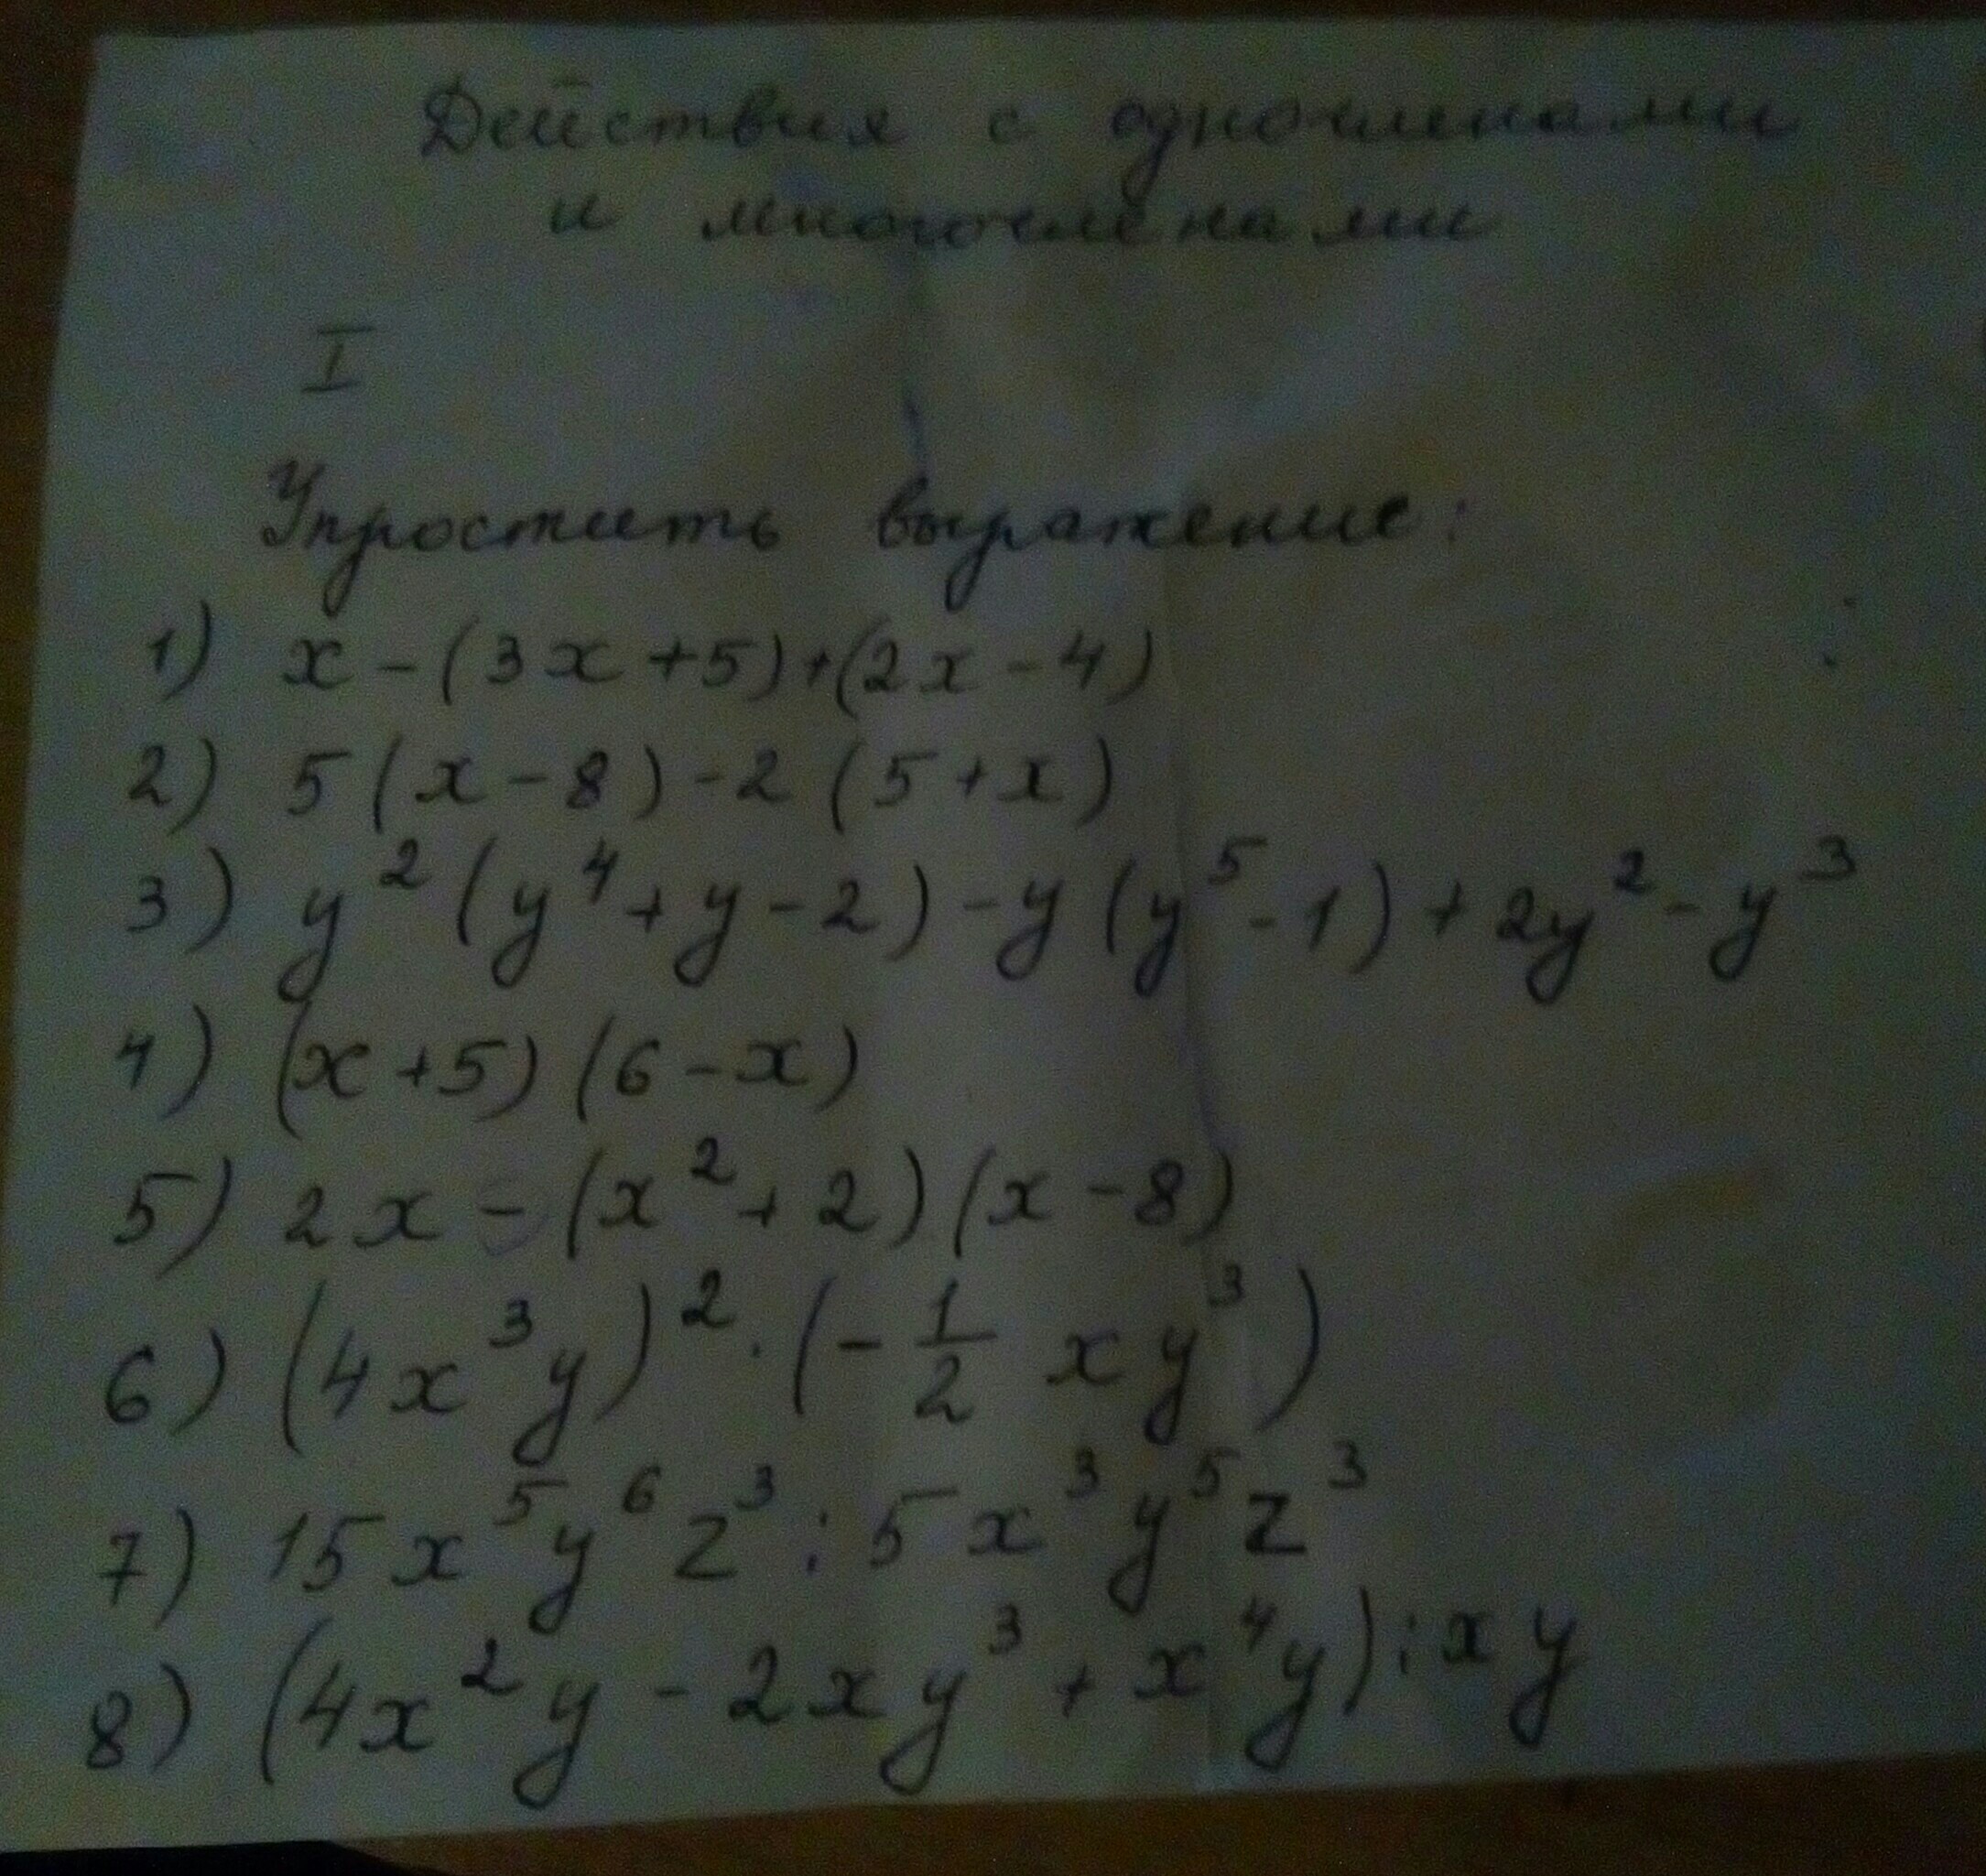 Действия с одночленами
и многочленами
I
Упростить выражение:
1) x - (3x + 5) + (2x - 4)
2) 5(x - 8) - 2(5 + x)
3) y²(y⁴ + y - 2) - y(y⁵ - 1) + 2y² - y³
4) (x + 5)(6 - x)
5) 2x - (x² + 2)(x - 8)
6) (4x³y)² · (-1/2 xy³)
7) 15x⁵y⁶z³ : 5x³y⁵z³
8) (4x²y - 2xy³ + x⁴y) : xy